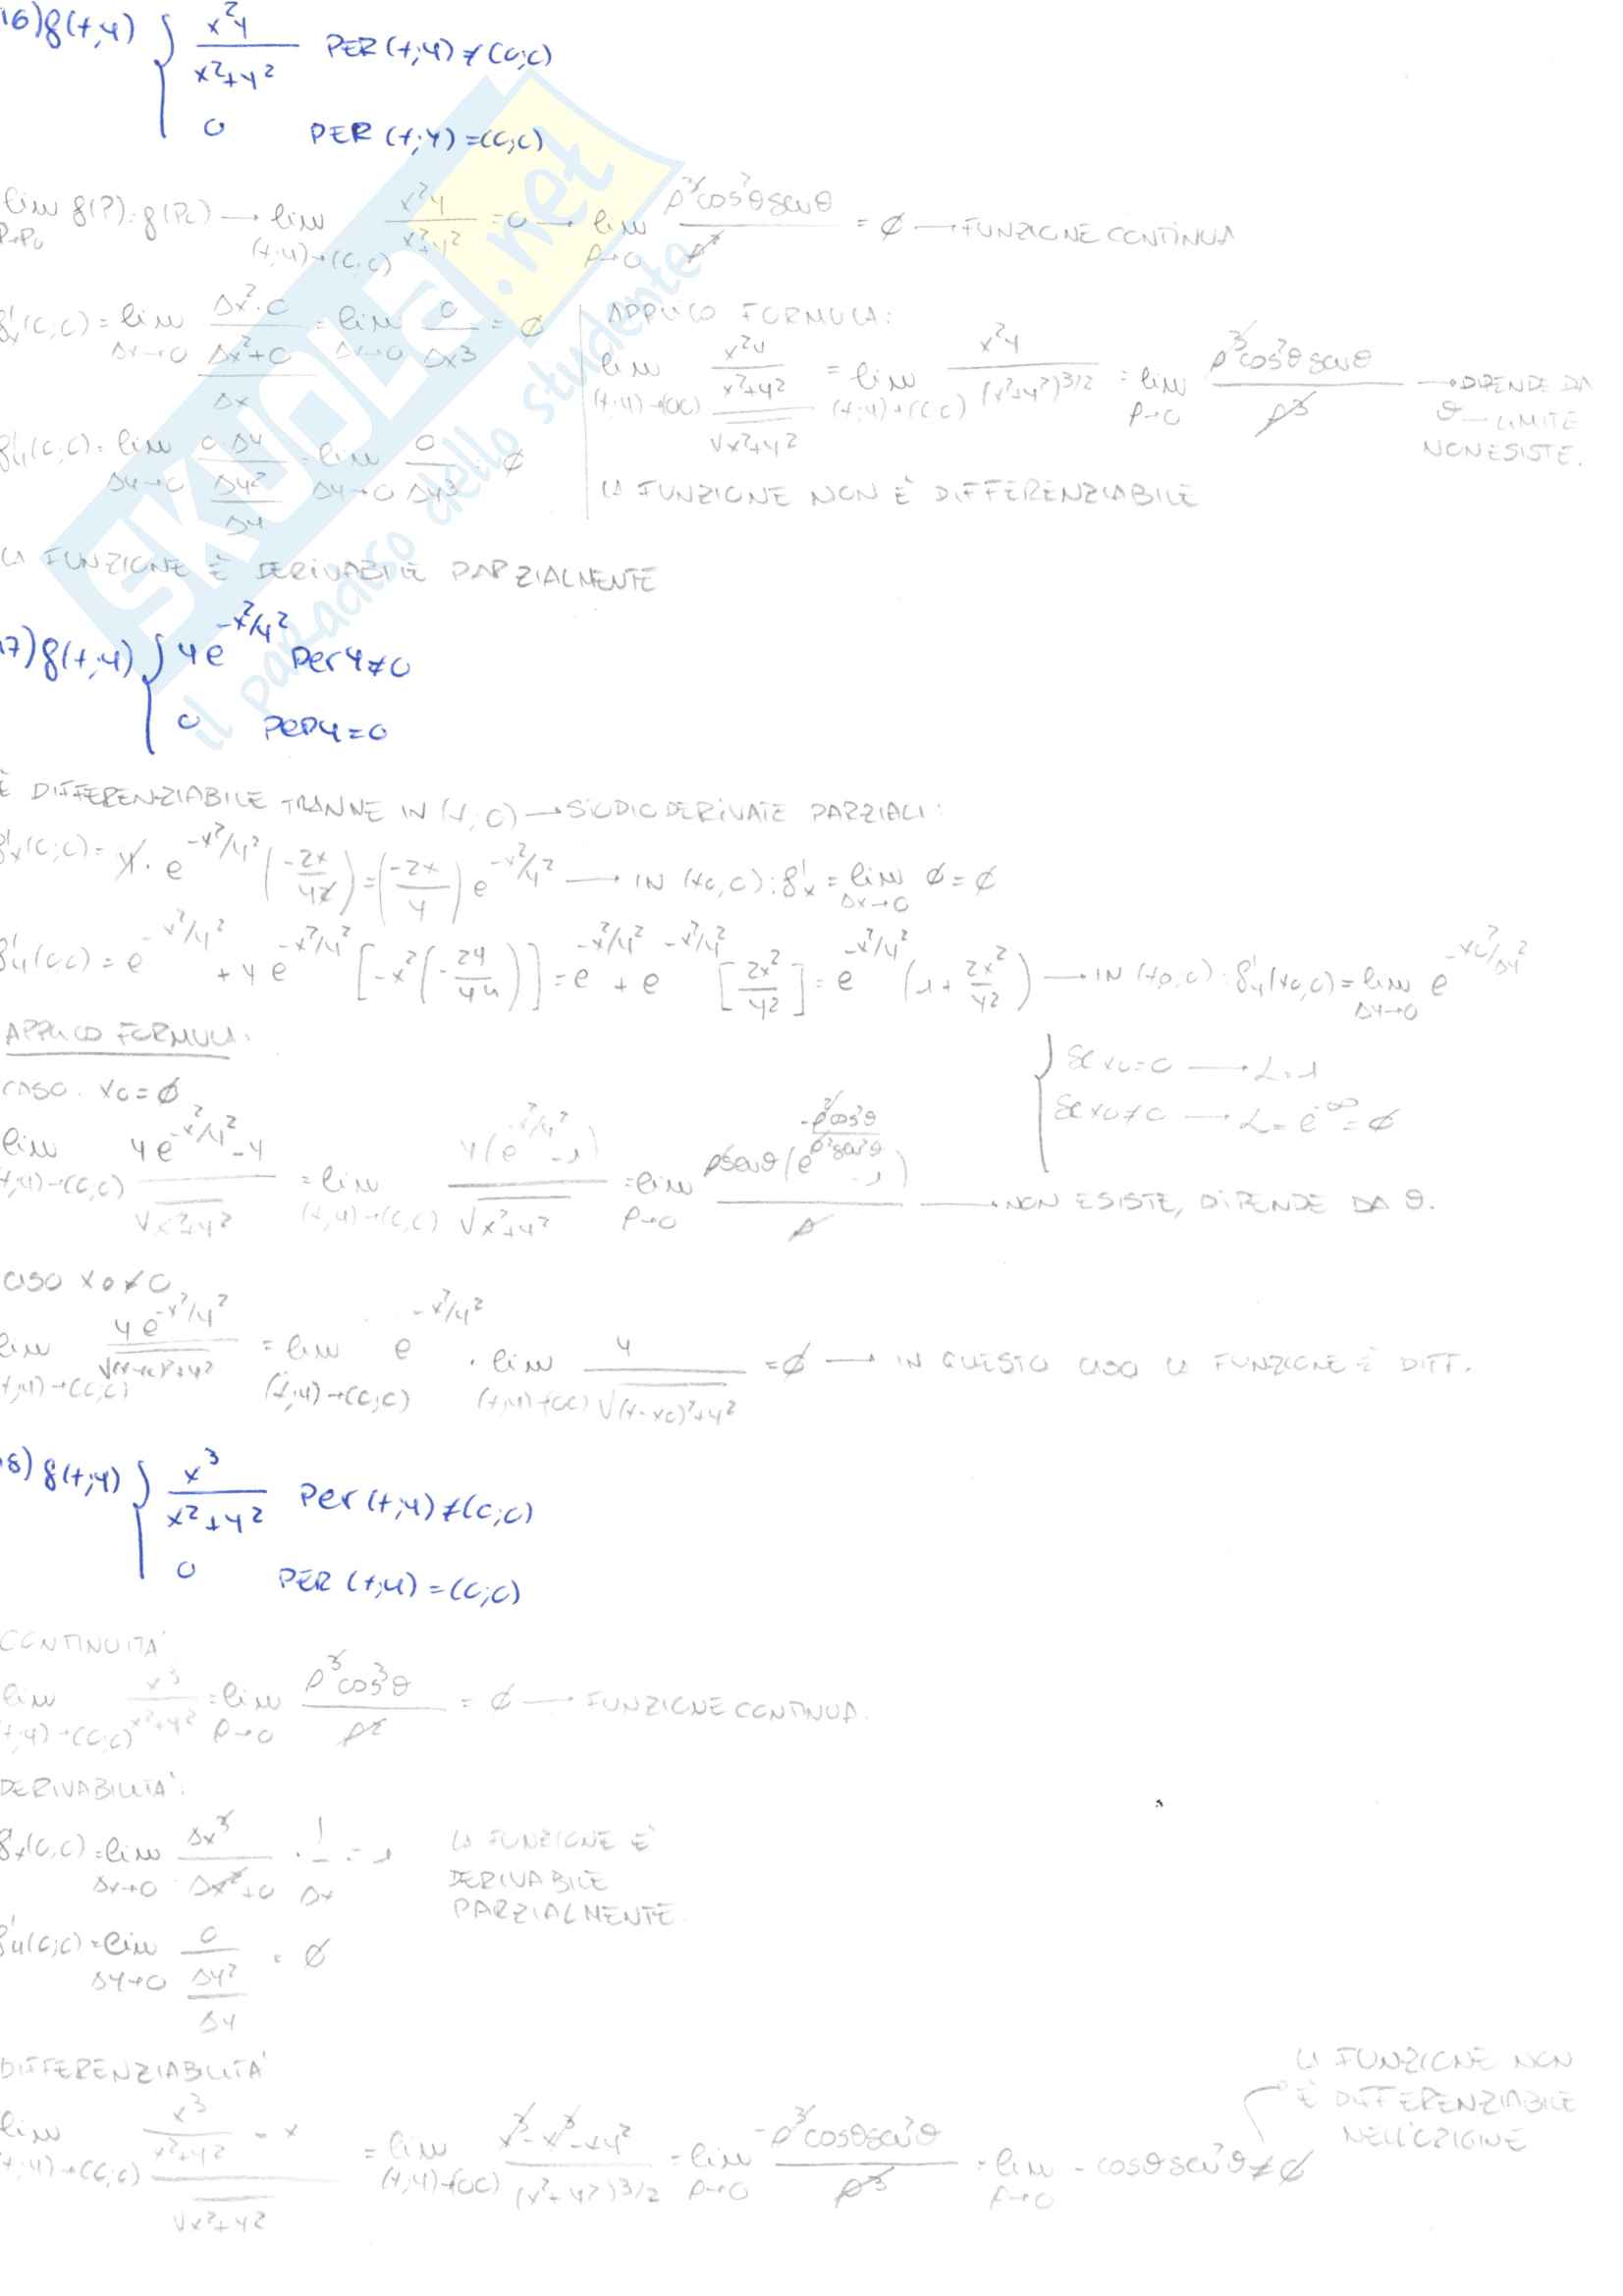 16) f(x,y) { x²y / x²+y² PER (x;y) ≠ (0;0)
0 PER (x;y) = (0;0)
lim P→P₀ f(P) = f(P₀) → lim (x;y)→(0;0) x²y / x²+y² = 0 → lim ρ→0 ρ³cos²θsenθ / ρ² = ∅ → FUNZIONE CONTINUA
f'x(0,0) = lim Δx→0 (Δx²·0 / Δx²+0) / Δx = lim Δx→0 0 / Δx³ = ∅
f'y(0,0) = lim Δy→0 (0·Δy / Δy²) / Δy = lim Δy→0 0 / Δy³ = ∅
LA FUNZIONE È DERIVABILE PARZIALMENTE
APPLICO FORMULA:
lim (x;y)→(0,0) (x²y / x²+y²) / √x²+y² = lim (x;y)→(0,0) x²y / (x²+y²)3/2 = lim ρ→0 ρ³cos²θsenθ / ρ³ → DIPENDE DA
θ – LIMITE
NON ESISTE.
LA FUNZIONE NON È DIFFERENZIABILE
17) f(x,y) { y e^-x²/y² Per y≠0
0 PER y=0
È DIFFERENZIABILE TRANNE IN (x,0) → STUDIO DERIVATE PARZIALI:
f'x(0;0) = y · e^-x²/y² (-2x / y²) = (-2x / y) e^-x²/y² → IN (x0,0): f'x = lim Δx→0 ∅ = ∅
f'y(0,0) = e^-x²/y² + y e^-x²/y² [-x²(-2y / y4)] = e^-x²/y² + e^-x²/y² [2x² / y²] = e^-x²/y² (1 + 2x² / y²) → IN (x0,0): f'y(x0,0) = lim Δy→0 e^-x0²/Δy²
{ SE x0=0 → L=1
SE x0≠0 → L= e^-∞ = ∅
APPLICO FORMULA:
CASO x0=∅
lim (x;y)→(0,0) y e^-x²/y² - y / √x²+y² = lim (x;y)→(0,0) y(e^-x²/y² -1) / √x²+y² = lim ρ→0 ρsenθ(e^-ρ²cos²θ/ρ²sen²θ -1) / ρ → NON ESISTE, DIPENDE DA θ.
CASO x0≠0
lim (x;y)→(0;0) y e^-x²/y² / √(x-x0)²+y² = lim (x;y)→(0;0) e^-x²/y² · lim (x;y)→(0,0) y / √(x-x0)²+y² = ∅ → IN QUESTO CASO LA FUNZIONE È DIFF.
18) f(x;y) { x³ / x²+y² Per (x;y) ≠ (0;0)
0 PER (x;y) = (0;0)
CONTINUITA'
lim (x;y)→(0;0) x³ / x²+y² = lim ρ→0 ρ³cos³θ / ρ² = ∅ → FUNZIONE CONTINUA.
DERIVABILITA':
f'x(0,0) = lim Δx→0 Δx³ / Δx²+0 · 1 / Δx = 1
LA FUNZIONE E'
DERIVABILE
PARZIALMENTE.
f'y(0;0) = lim Δy→0 (0 / Δy²) / Δy = ∅
DIFFERENZIABILITA'
lim (x;y)→(0;0) (x³ / x²+y² - x) / √x²+y² = lim (x;y)→(0,0) x³-x³-xy² / (x²+y²)3/2 = lim ρ→0 -ρ³cosθsen²θ / ρ³ = lim ρ→0 - cosθsen²θ ≠ ∅
LA FUNZIONE NON
È DIFFERENZIABILE
NELL'ORIGINE
SKUOLA.net
il paradiso dello studente